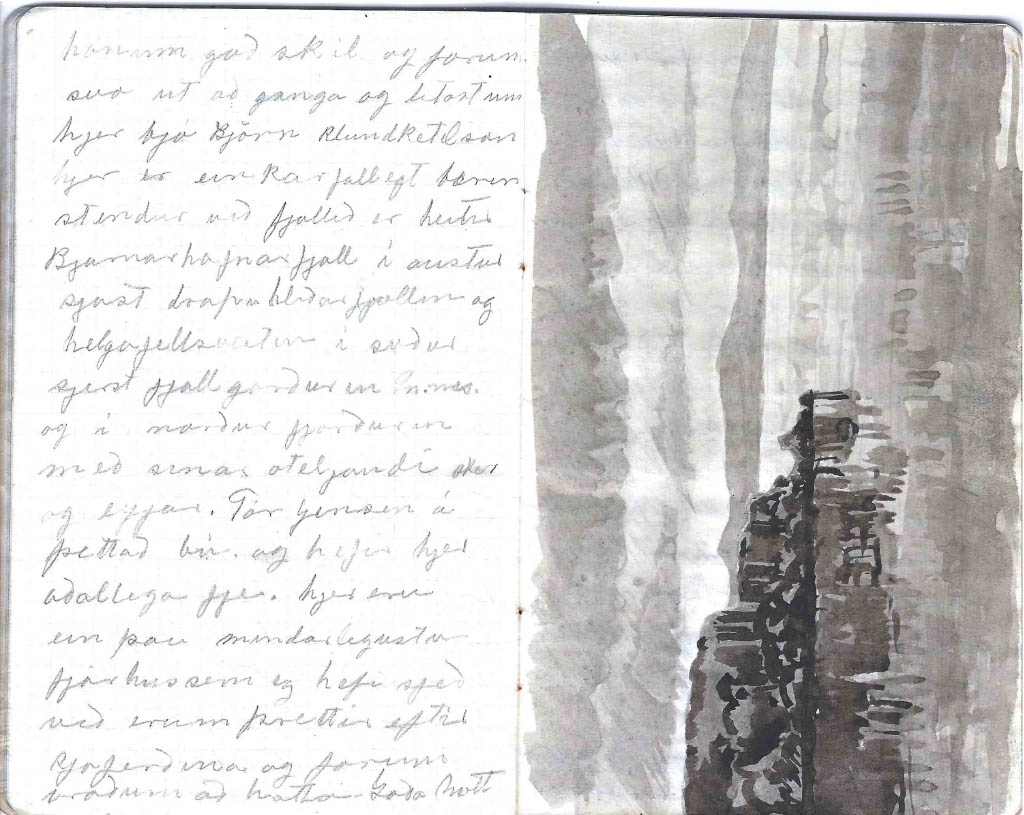 honum god skil og forum
svo út ad ganga og litast um
hjer bjó Björn
hjer er ein Kar fallegt bærin
stendur vid fjallid er heitir
Bjarnarhafnarfjall i austur
sjást drapuhlidarfjallin og
helgafellssveitin i sudur
sjest fjallgardurin
og i nordur fjordurin
med sina oteljandi sker
og eyjar. Tor Jensen á
þettad bú. og hefir hjer
adallega fje. hjer eru
ein þau mindarlegustu
fjárhus sem eg hefi sjed
vid erum þrettir eftir
sjoferdina og forum
brádum ad hátta Goda Nótt